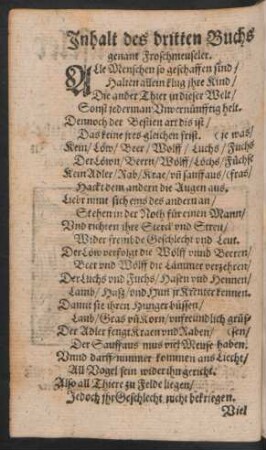 Inhalt des dritten Buchs
genant Froschmeuseler.
Alle Menschen so geschaffen sind/
Halten allein klug jhre Kind/
Die ander Thier in dieser Welt/
Sonst jederman Unvernünfftig helt.
Dennoch der Bestien art dis ist/
Das keine jres gleichen frist. (je was/
Kein Löw/ Beer/ Wolff/ Luchs/ Fuchs
Der Löwn/ Beern/ Wölff/ Löchs/ Füchse
Kein Adler/ Rab/ Krae/ uñ sauffaus/ (fras/
Hackt dem andern die Augen aus.
Liebt eins sich ens des andern an/
Stehen in der Noth für einen Mann/
Und richten ihre Sterck und Streu/
Wider frembde Geschlecht und Leut.
Der Löw verfolgt die Wölff unnd Beeren/
Beer und Wölff die Lämmer verzehren/
Der Luchs und Fuchs/ Hasen und Hennen/
Lamb/ Hass/ und Hun jr Kräuter kennen.
Damit sie ihren Hunger büssen/
Laub/ Gras uñ Korn/ unfreundlich grüs/
Der Adler fengt Kraen und Raben/ (sen/
Der Sauffaus mus viel Meuse haben.
Unnd darff nimmer kommen ans Liecht/
All Vogel sein wider ihn gericht.
Also all Thiere zu Felde liegen/
Jedoch jhr Geschlecht nicht bekriegen.
Viel